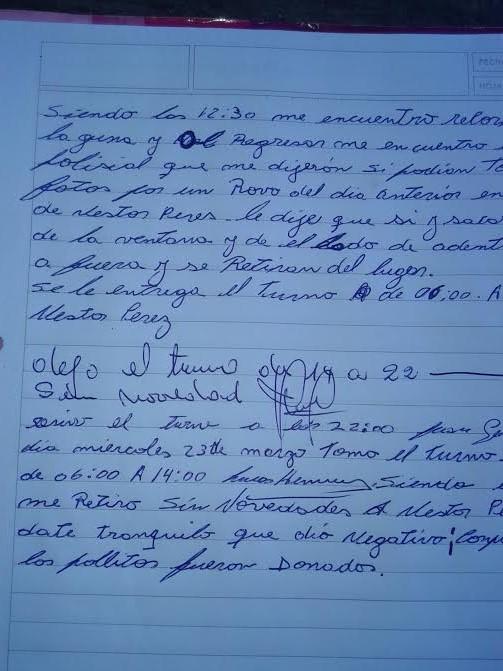 FECHA
HOJA
Siendo las 12:30 me encuentro recor
la guna y al Regresar me encuentro
polisial que me dijerón si podian To
fotos por un Rovo del dia anterior en
de Nestor Peres. le dije que si y saca
de la ventana y de el lado de adent
a fuera y se Retiran del lugar.
se le entrega el turno A de 06:00. A
Nestor Perez
dejo el turno de a 22
Sin novedad
el turno a las 22:00 Juan
dia miercoles 23 de marzo Tomo el turno.
de 06:00 A 14:00 Siendo
me Retiro Sin Novedades A Nestor Pe
date tranquilo que dio Negativo
los pollitos fueron Donados.